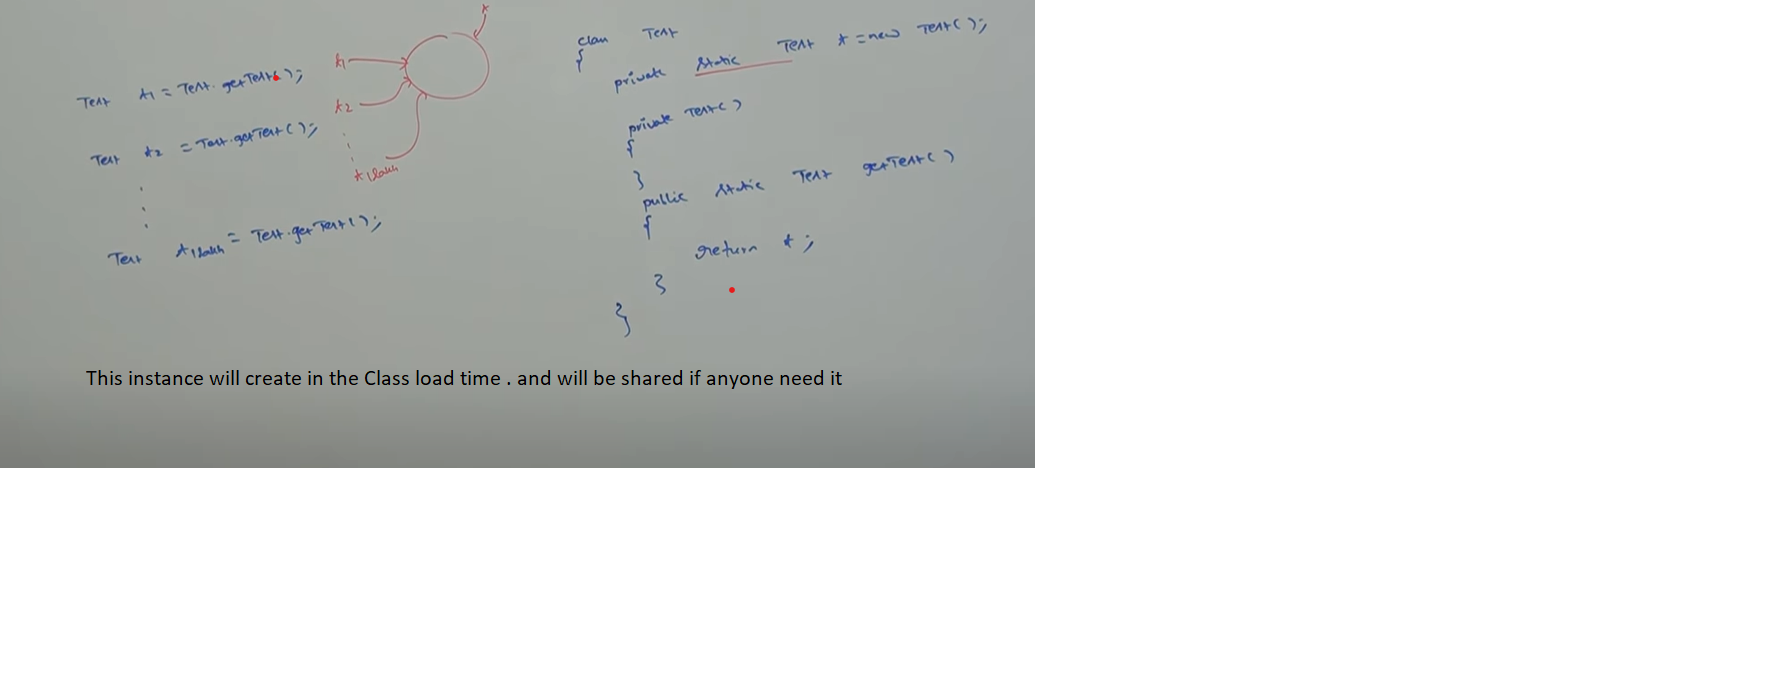 Test t1 = Test.getTest();
Test t2 = Test.getTest();
Test t1lakh = Test.getTest();
t
t1
t2
t1lakh
class Test
{
private static Test t = new Test();
private Test()
{
}
public static Test getTest()
{
return t;
}
}
This instance will create in the Class load time . and will be shared if anyone need it